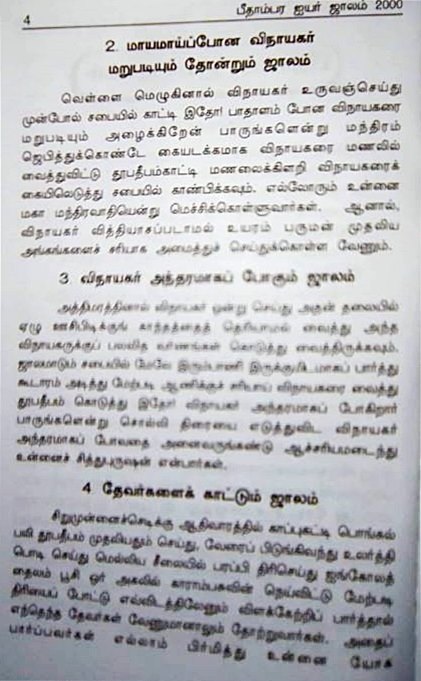 4
பீதாம்பர ஐயர் ஜாலம் 2000
2. மாயமாய்ப்போன விநாயகர்
மறுபடியும் தோன்றும் ஜாலம்
வெள்ளை மெழுகினால் விநாயகர் உருவஞ்செய்து
முன்போல் சபையில் காட்டி இதோ! பாதாளம் போன விநாயகரை
மறுபடியும் அழைக்கிறேன் பாருங்களென்று மந்திரம்
ஜெபித்துக்கொண்டே கையடக்கமாக விநாயகரை மணலில்
வைத்துவிட்டு தூபதீபம்காட்டி மணலைக்கிளறி விநாயகரைக்
கையிலெடுத்து சபையில் காண்பிக்கவும். எல்லோரும் உன்னை
மகா மந்திரவாதியென்று மெச்சிக்கொள்ளுவார்கள். ஆனால்,
விநாயகர் வித்தியாசப்படாமல் உயரம் பருமன் முதலிய
அங்கங்களைச் சரியாக அமைத்துச் செய்துகொள்ள வேணும்.
3. விநாயகர் அந்தரமாகப் போகும் ஜாலம்
அத்திமரத்தினால் விநாயகர் ஒன்று செய்து அதன் தலையில்
ஏழு ஊசிபிடிக்குங் காந்தத்தைத் தெரியாமல் வைத்து அந்த
விநாயகருக்குப் பலவித வர்ணங்கள் கொடுத்து வைத்திருக்கவும்.
ஜாலமாடும் சபையில் மேலே இரும்பாணி இருக்குமிடமாகப் பார்த்து
கூடாரம் அடித்து மேற்படி ஆணிக்குச் சரியாய் விநாயகரை வைத்து
தூபதீபம் கொடுத்து இதோ! விநாயகர் அந்தரமாகப் போகிறார்
பாருங்களென்று சொல்லி திரையை எடுத்துவிட விநாயகர்
அந்தரமாகப் போவதை அனைவருங்கண்டு ஆச்சரியமடைந்து
உன்னைச் சித்துபுருஷன் என்பார்கள்.
4 தேவர்களைக் காட்டும் ஜாலம்
சிறுமுன்னைச்செடிக்கு ஆதிவாரத்தில் காப்புகட்டி பொங்கல்
பலி தூபதீபம் முதலியதும் செய்து, வேரைப் பிடுங்கிவந்து உலர்த்தி
பொடி செய்து மெல்லிய சீலையில் பரப்பி திரிசெய்து ஐங்கோலத்
தைலம் பூசி ஓர் அகலில் காராம்பசுவின் நெய்விட்டு மேற்படி
திரியைப் போட்டு எவ்விடத்திலேனும் விளக்கேற்றிப் பார்த்தால்
எந்தெந்த தேவர்கள் வேணுமானாலும் தோற்றுவார்கள். அதைப்
பார்ப்பவர்கள் எல்லாம் பிரமித்து உன்னை யோக